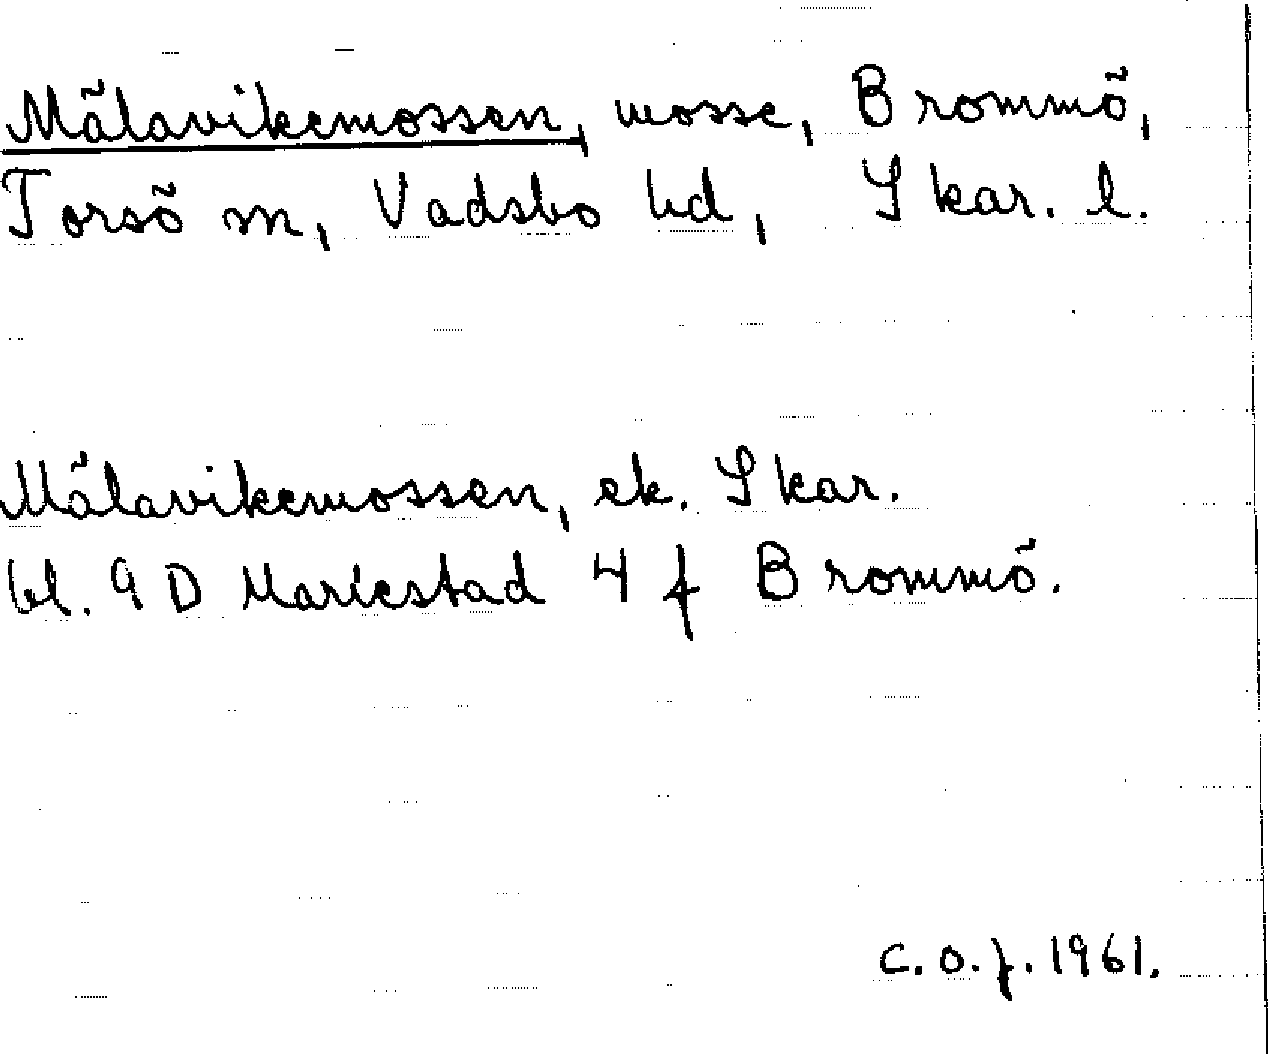 Målavikemossen, mosse, Brommö,
Torsö sn, Vadsbo hd, Skar. l.
Målavikemossen, ek. Skar.
bl. 9 D Mariestad 4 f Brommö.
C.O.F. 1961.